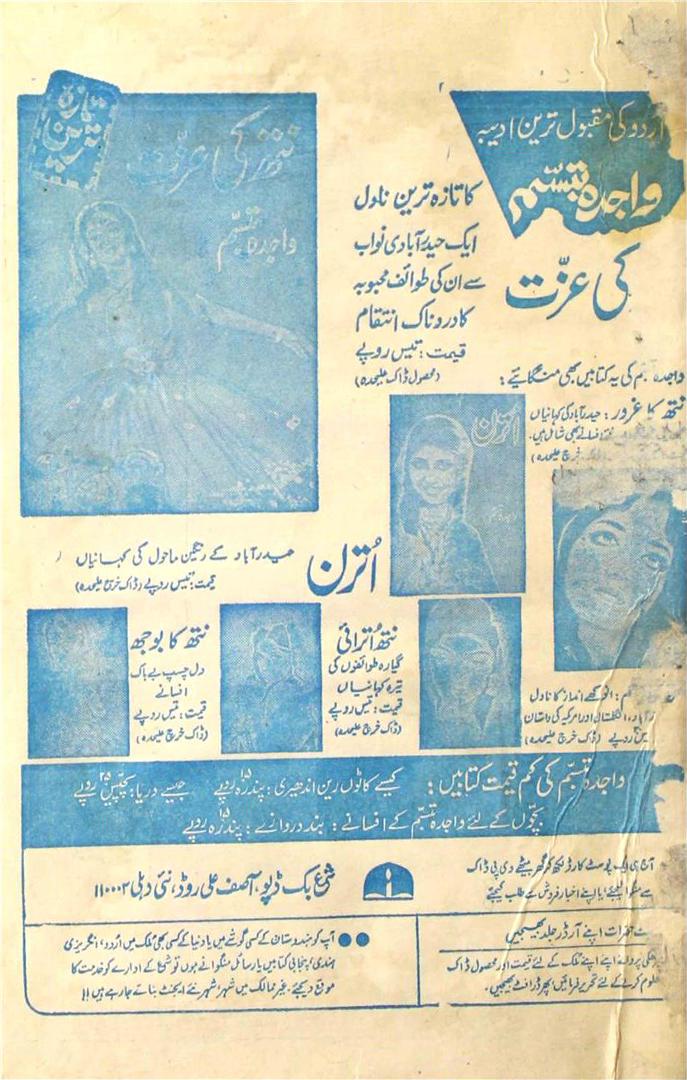 اردو کی مقبول ترین ادیبہ
واجدہ تبسّم
کا تازہ ترین ناول
ایک حیدرآبادی نواب
سے ان کی طوائف محبوبہ
کا دردناک انتقام
قیمت: تیس روپے
(محصول ڈاک علیحدہ)
کی عزّت
تازہ
ترین
نتھ کی عزّت
واجدہ تبسّم
واجدہ تبسّم کی یہ کتابیں بھی منگائیے:
نتھ کا غرور: حیدرآباد کی کہانیاں
افسانے بھی شامل ہیں.
خرچ علیحدہ)
اُترن
واجدہ تبسّم
اُترن
حیدرآباد کے رنگین ماحول کی کہانیاں
قیمت: تیس روپے (ڈاک خرچ علیحدہ)
انوکھے انداز کا ناول
انگلستان اور امریکہ کی داستان
روپے (ڈاک خرچ علیحدہ)
نتھ اُترائی
گیارہ طوائفوں کی
تیرہ کہانیاں
قیمت: تیس روپے
(ڈاک خرچ علیحدہ)
نتھ کا بوجھ
دل چسپ بے باک
افسانے
قیمت: تیس روپے
(ڈاک خرچ علیحدہ)
واجدہ تبسّم کی کم قیمت کتابیں: کیسے کاٹوں رین اندھیری: پندرہ ۱۵ روپے جیسے دریا: پچّیس ۲۵ روپے
بچّوں کے لئے واجدہ تبسّم کے افسانے: بند دروازے: پندرہ ۱۵ روپے
آج ہی ایک پوسٹ کارڈ لکھ کر گھر بیٹھے وی پی ڈاک
سے منگا لیجئے یا اپنے اخبار فروش سے طلب کیجئے
شمع بک ڈپو، آصف علی روڈ، نئی دہلی ۱۱۰۰۰۲
حضرات اپنے آرڈر جلد بھیجیں
اپنے اپنے ملک کے لئے قیمت اور محصول ڈاک
معلوم کرنے کے لئے تحریر فرمائیں؛ پھر ڈرافٹ بھیجیں.
آپ کو ہندوستان کے کسی گوشے میں یا دنیا کے کسی بھی ملک میں اُردو، انگریزی
ہندی، پنجابی کتابیں یا رسائل منگوانے ہوں تو شمع کے ادارے کو خدمت کا
موقع دیجئے. غیر ممالک میں شہر شہر نئے ایجنٹ بناتے جا رہے ہیں!!